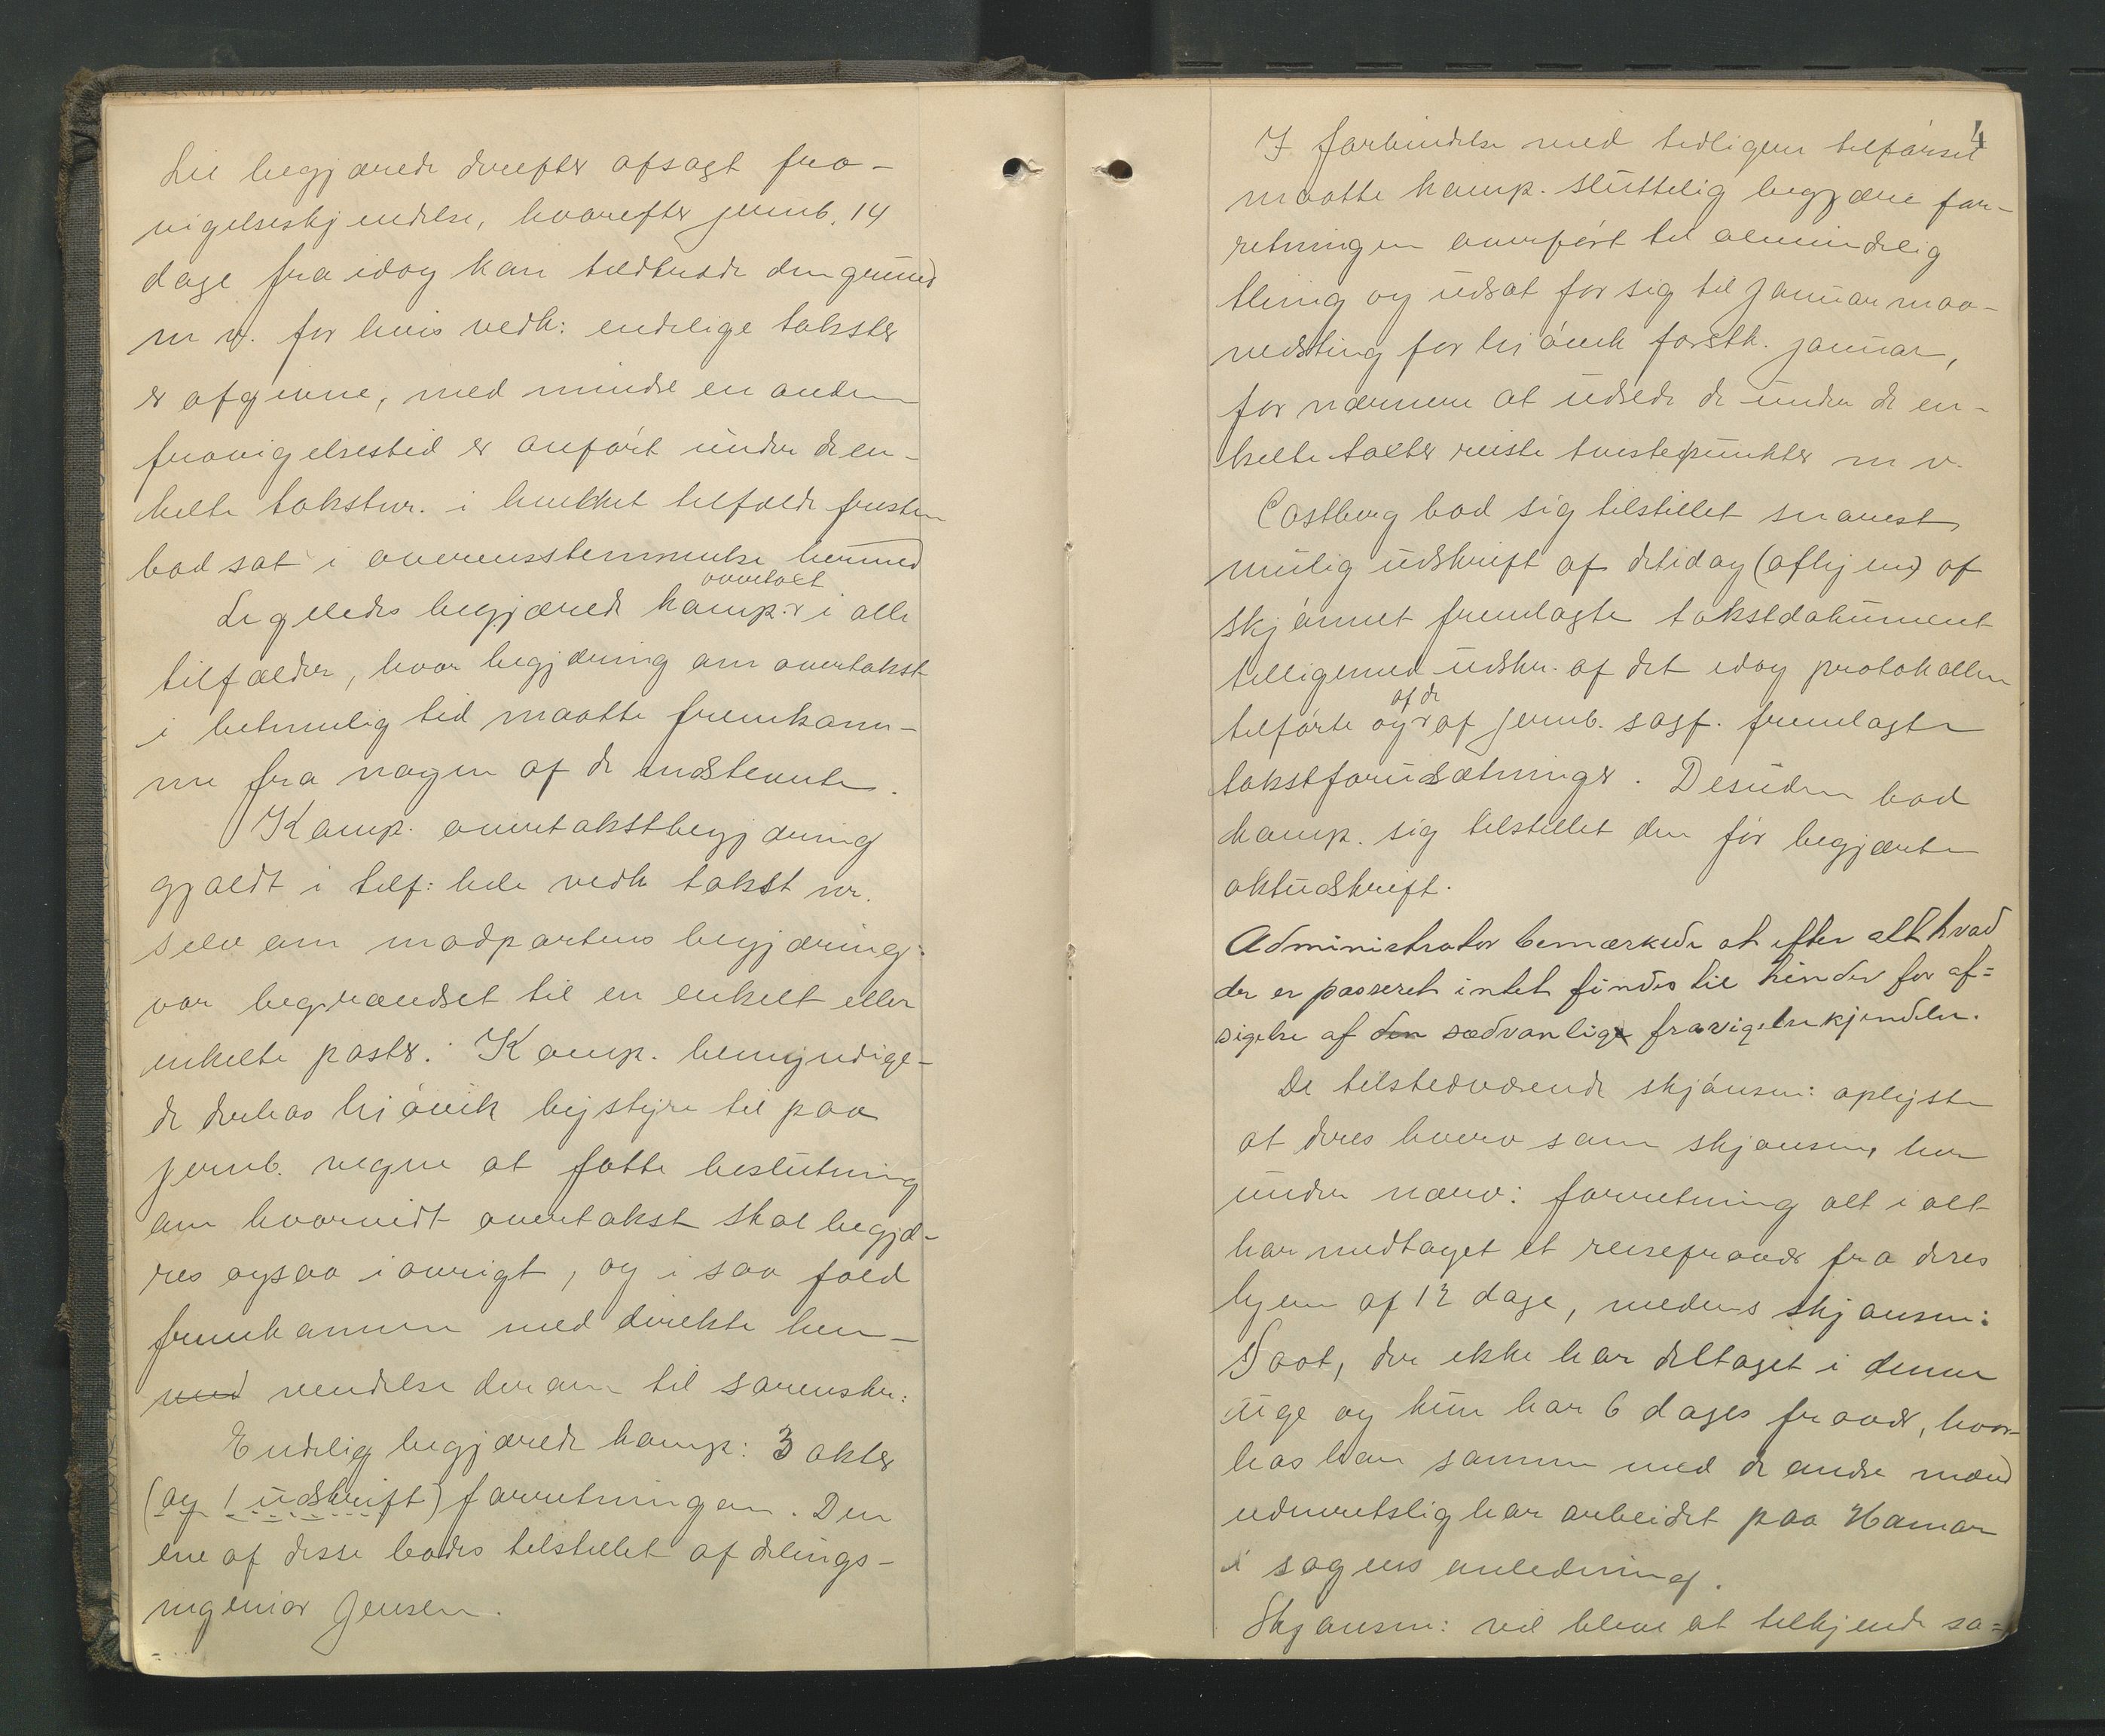 Lie begjærede derefter afsagt fra-
vigelseskjendelse, hvorefter jernb. 14
dage fra idag kan tiltræde den grund
m v. for hvis vedk: endelige takster
er afgivne, med mindre en anden
fravigelsestid er anført under de en-
kelte takstnr. i hvilket tilfælde fristen
bad sat i overensstemmelse hermed
overtaxt
Ligeledes begjærede komp: v i alle
tilfælder, hvor begjæring om overtakst
i betimelig tid maatte fremkom-
me fra nogen af de indstevnte.
Komp. overtakstbegjæring
gjaldt i tilf: hele vedk takst nr.
selv om modpartens begjæring
var begrændset til en enkelt eller
enkelte poster. Komp. bemyndige-
de derhos Gjøvik bystyre til paa
jernb. vegne at fatte beslutning
om hvorvidt overtakst skal begjæ-
res ogsaa iøvrigt, og i saa fald
fremkomme med direkte hen-
med vendelse derom til sorenskr:
Endelig begjærede komp: 3 akter
(og 1 udskrift) forretningen. Den
ene af disse bades tilstillet afdelings-
ingeniør Jensen.
4
I forbindelse med tidligere tilførsel
maatte komp. sluttelig begjære for-
retningen overført til almindelig
thing og udsat for sig til januar maa-
nedsting for Gjøvik forstk. januar,
for nærmere at udrede de under de en-
kelte taxter reiste tvistepunkter m v.
Castberg bad sig tilstillet snarest
mulig udskrift af det idag (afhjem) af
skjønnet fremlagte takstdokument
tilligemed udskr. af det idag protokollen
af de
tilførte og v af jernb. sagf. fremlagte
takstforudsætninger. Desuden bad
komp. sig tilstillet den før begjærte
aktudskrift.
Administrator bemærkede at efter alt hvad
der er passeret intet findes til hinder for af=
sigelse af den sædvanlige fravigelseskjendelse.
De tilstedværende skjønsm: oplyste
at deres hverv som skjønsm, her
under nærv: forretning alt i alt
har medtaget et reisefravær fra deres
hjem af 12 dage, medens skjønsm:
Soot, der ikke har deltaget i denne
uge og kun har 6 dages fravær, hvor-
hos han sammen med de andre mænd
udenretslig har arbeidet paa Hamar
i sagens anledning.
Skjønsm: vil blive at tilkjende sa=